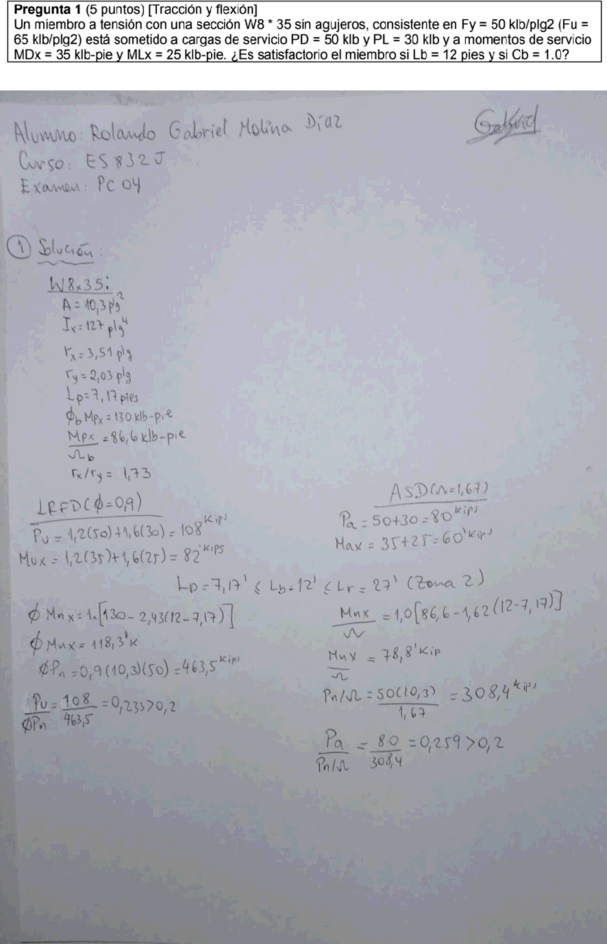 Pregunta 1 (5 puntos) [Tracción y flexión]
Un miembro a tensión con una sección W8 * 35 sin agujeros, consistente en Fy = 50 klb/plg2 (Fu =
65 klb/plg2) está sometido a cargas de servicio PD = 50 klb y PL = 30 klb y a momentos de servicio
MDx = 35 klb-pie y MLx = 25 klb-pie. ¿Es satisfactorio el miembro si Lb = 12 pies y si Cb = 1.0?
Alumno: Rolando Gabriel Molina Díaz
Gabriel
Curso: ES832J
Examen: PC04
① Solución:
W8x35:
A = 10,3 plg²
Ix = 127 plg⁴
rx = 3,51 plg
ry = 2,03 plg
Lp = 7,17 pies
ϕb Mpx = 130 klb-pie
Mpx/Ωb = 86,6 klb-pie
rx/ry = 1,73
LRFD (ϕ=0,9)
Pu = 1,2(50)+1,6(30) = 108 kips
Mux = 1,2(35)+1,6(25) = 82 'kips
ASD (Ω=1,67)
Pa = 50+30 = 80 kips
Max = 35+25 = 60 'kips
Lp = 7,17' ≤ Lb = 12' ≤ Lr = 27' (Zona 2)
ϕ Mnx = 1.[130 - 2,43(12-7,17)]
ϕ Mnx = 118,3'k
ϕPn = 0,9(10,3)(50) = 463,5 kips
Pu/ϕPn = 108/463,5 = 0,233 > 0,2
Mnx/Ω = 1,0[86,6 - 1,62(12-7,17)]
Mnx/Ω = 78,8'kip
Pn/Ω = 50(10,3)/1,67 = 308,4 kips
Pa/Pn/Ω = 80/308,4 = 0,259 > 0,2